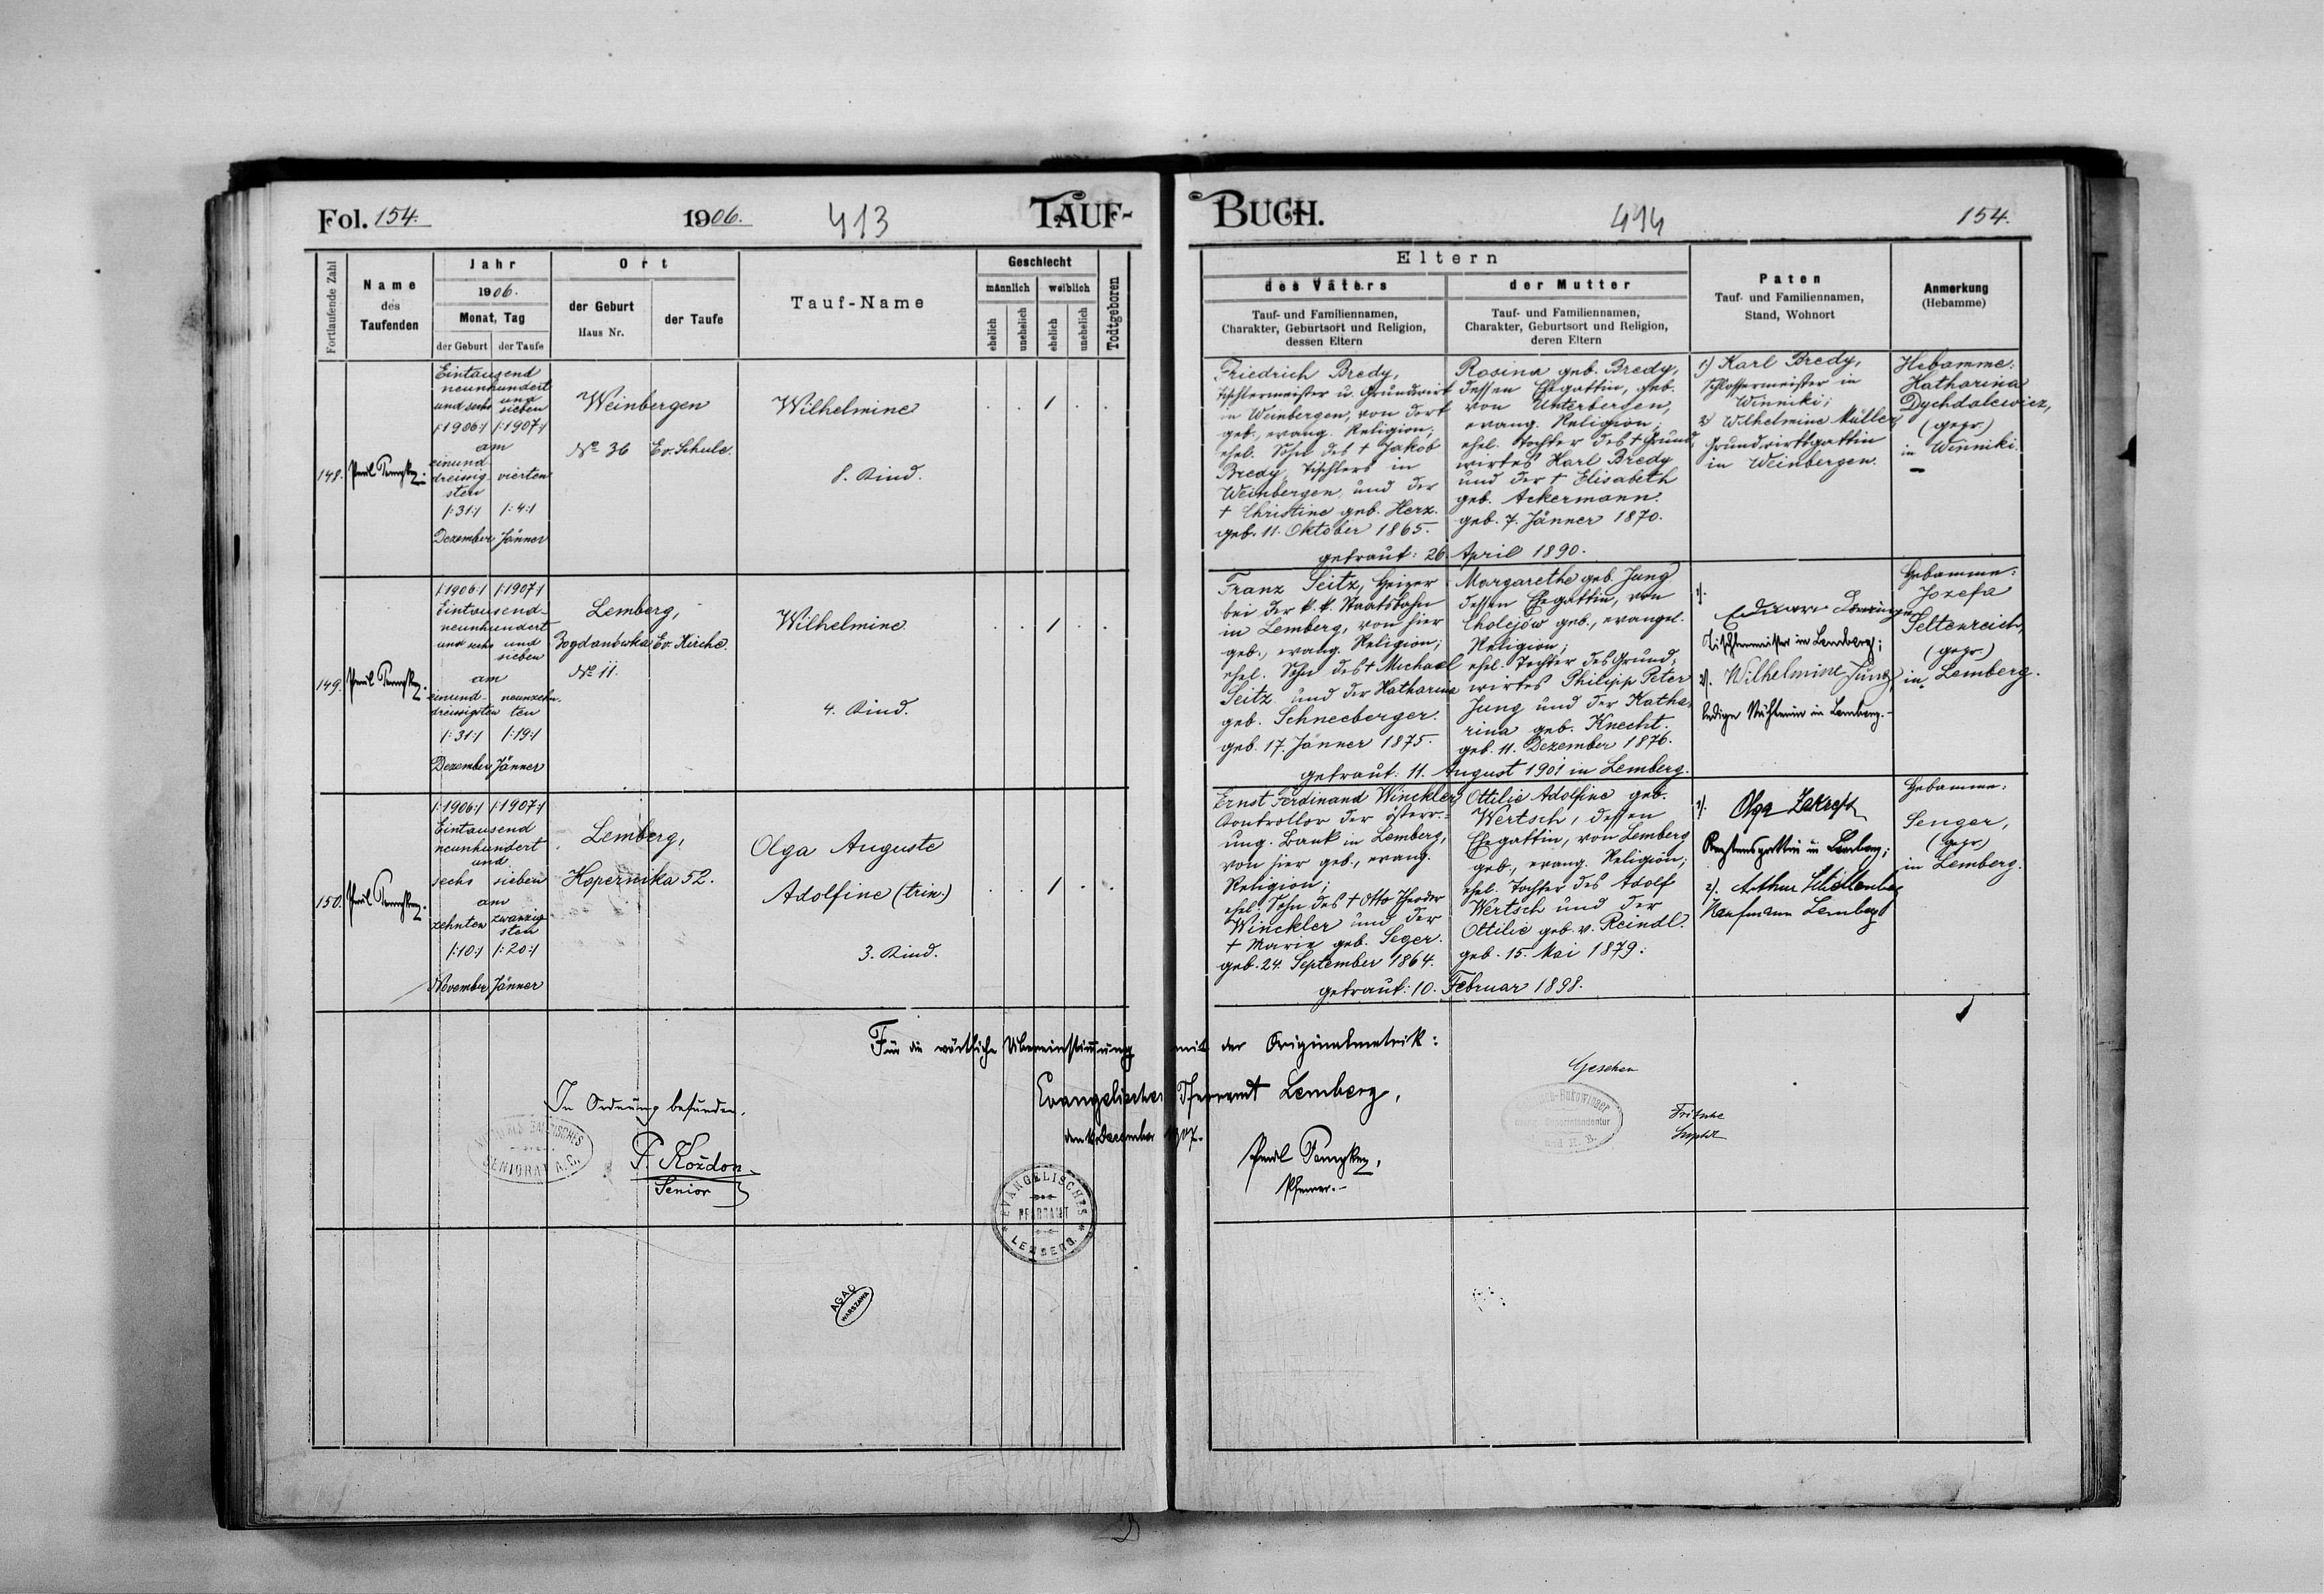 Fol. 154.
1906.
413
TAUF-
Fortlaufende Zahl
Name
des
Taufenden
Jahr
1906.
Monat, Tag
der Geburt
der Taufe
Ort
der Geburt
Haus Nr.
der Taufe
Tauf-Name
Geschlecht
männlich
weiblich
ehelich
unehelich
ehelich
unehelich
Todtgeboren
148.
Eintausend
neunhundert
und sechs
und
sieben
/:1906:/ /:1907:/
am
einund
dreissig
sten
vierten
/:31:/ /:4:/
Dezember Jänner
Weinbergen
No 36
Ev. Schule.
Wilhelmine
8. Kind.
1
149.
/:1906:/ /:1907:/
Eintausend-
neunhundert
und sechs und
sieben
am
einund- neunzehn
dreissigsten ten
/:31:/ /:19:/
Dezember Jänner
Lemberg,
Bogdanówka Ev. Kirche.
No 11.
Wilhelmine
4. Kind.
1
150.
/:1906:/ /:1907:/
Eintausend
neunhundert
und
sechs sieben
am
zehnten zwanzig
sten
/:10:/ /:20:/
November Jänner
Lemberg,
Kopernika 52.
Olga Auguste
Adolfine (trin.)
3. Kind.
1
BUCH.
414
154.
Eltern
des Vaters
Tauf- und Familiennamen,
Charakter, Geburtsort und Religion,
dessen Eltern
der Mutter
Tauf- und Familiennamen,
Charakter, Geburtsort und Religion,
deren Eltern
Paten
Tauf- und Familiennamen,
Stand, Wohnort
Anmerkung
(Hebamme)
Friedrich Bredy,
Tischlermeister u. Grundwirt
in Weinbergen, von dort
geb., evang. Religion;
ehel. Sohn des † Jakob
Bredy, Tischlers in
Weinbergen, und der
† Christine geb. Herz.
geb. 11. Oktober 1865.
Rosina geb. Bredy,
dessen Ehegattin, geb.
von Unterbergen,
evang. Religion;
ehel. Tochter des † Grund-
wirtes Karl Bredy
und der † Elisabeth
geb. Ackermann.
geb. 7. Jänner 1870.
getraut: 26. April 1890.
1) Karl Bredy,
Schlossermeister in
Winniki;
2) Wilhelmine Müller,
Grundwirtsgattin
in Weinbergen.
Hebamme:
Katharina
Dychdalewicz,
(gepr.)
in Winniki.
Franz Seitz, Heizer
bei der k. k. Staatsbahn
in Lemberg, von hier
geb., evang. Religion;
ehel. Sohn des † Michael
Seitz und der Katharina
geb. Schneeberger.
geb. 17. Jänner 1875.
Margarethe geb. Jung
dessen Ehegattin, von
Cholejów geb., evangel.
Religion;
ehel. Tochter des Grund-
wirtes Philipp Peter
Jung und der Katha-
rina geb. Knecht.
geb. 11. Dezember 1876.
getraut: 11. August 1901 in Lemberg.
1).
Tischlermeister in Lemberg;
2). Wilhelmine Jung
ledige Näherin in Lemberg.
Hebamme:
Jozefa
Seltenreich,
(gepr.)
in Lemberg.
Ernst Ferdinand Winckler,
Controllor der österr.-
ung. Bank in Lemberg,
von hier geb., evang.
Religion;
ehel. Sohn des † Otto Theodor
Winckler und der
† Marie geb. Seger.
geb. 24. September 1864.
Ottilie Adolfine geb.
Wertsch, dessen
Ehegattin, von Lemberg
geb., evang. Religion;
ehel. Tochter des Adolf
Wertsch und der
Ottilie geb. v. Reindl.
geb. 15. Mai 1879.
getraut: 10. Februar 1898.
1). Olga
in Lemberg;
2). Arthur
Kaufmann Lemberg
Hebamme:
Senger,
(gepr.)
in Lemberg.
Für die wörtliche Übereinstimmung mit der Originalmatrik:
Evangelisches Pfarramt Lemberg,
December 1907.
Pfarrer.
In Ordnung befunden.
SENIORAT A.C.
P. Kożdon
Senior
Gesehen
Fritsche
Supt
EVANGELISCHES
PFARRAMT
LEMBERG
AGAD
WARSZAWA